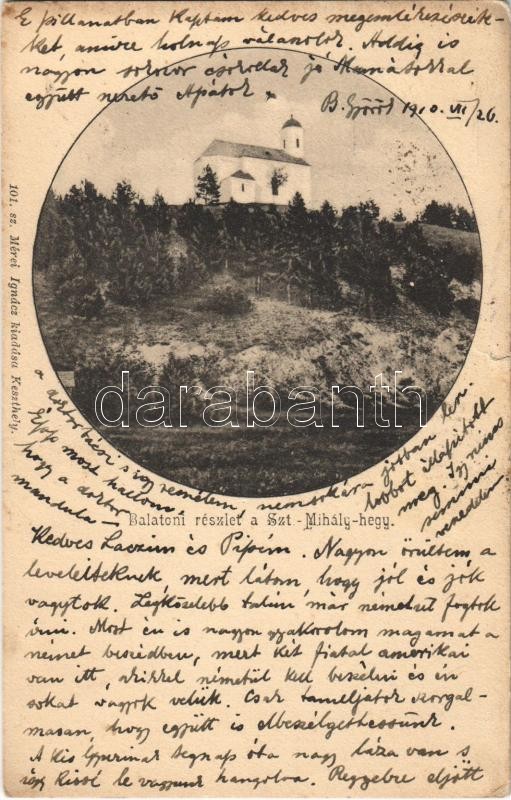 E pillanatban kaptam kedves megemlékezésteket, amire holnap válaszolok. Addig is
nagyon sokszor csókollak jó Munátokkal
együtt szerető Apátok
B. Györök 1910. VII/26.
101. sz. Mérei Ignácz kiadása Keszthely.
darabanth
Balatoni részlet a Szt-Mihály-hegy.
Kedves Laczim és Pipim. Nagyon örültem a
leveleiteknek, mert látom, hogy jól és jók
vagytok. Legközelebb talán már németül fogtok
írni. Most én is nagyon gyakorolom magamat a
német beszédben, mert két fiatal amerikai
van itt, akikkel németül kell beszélni és én
sokat vagyok velük. Csak tanuljatok szorgal-
masan, hogy együtt is elbeszélgethessünk.
A kis tegnap óta nagy láza van s
így kissé le vagyunk hangolva. Reggelre eljött
a doktor bácsi s így remélem, nemsokára jobban lesz.
Épp most hallom,
hogy a doktor
mandula-
lobbot állapított
meg. Így nincs
semmi
veszedelem